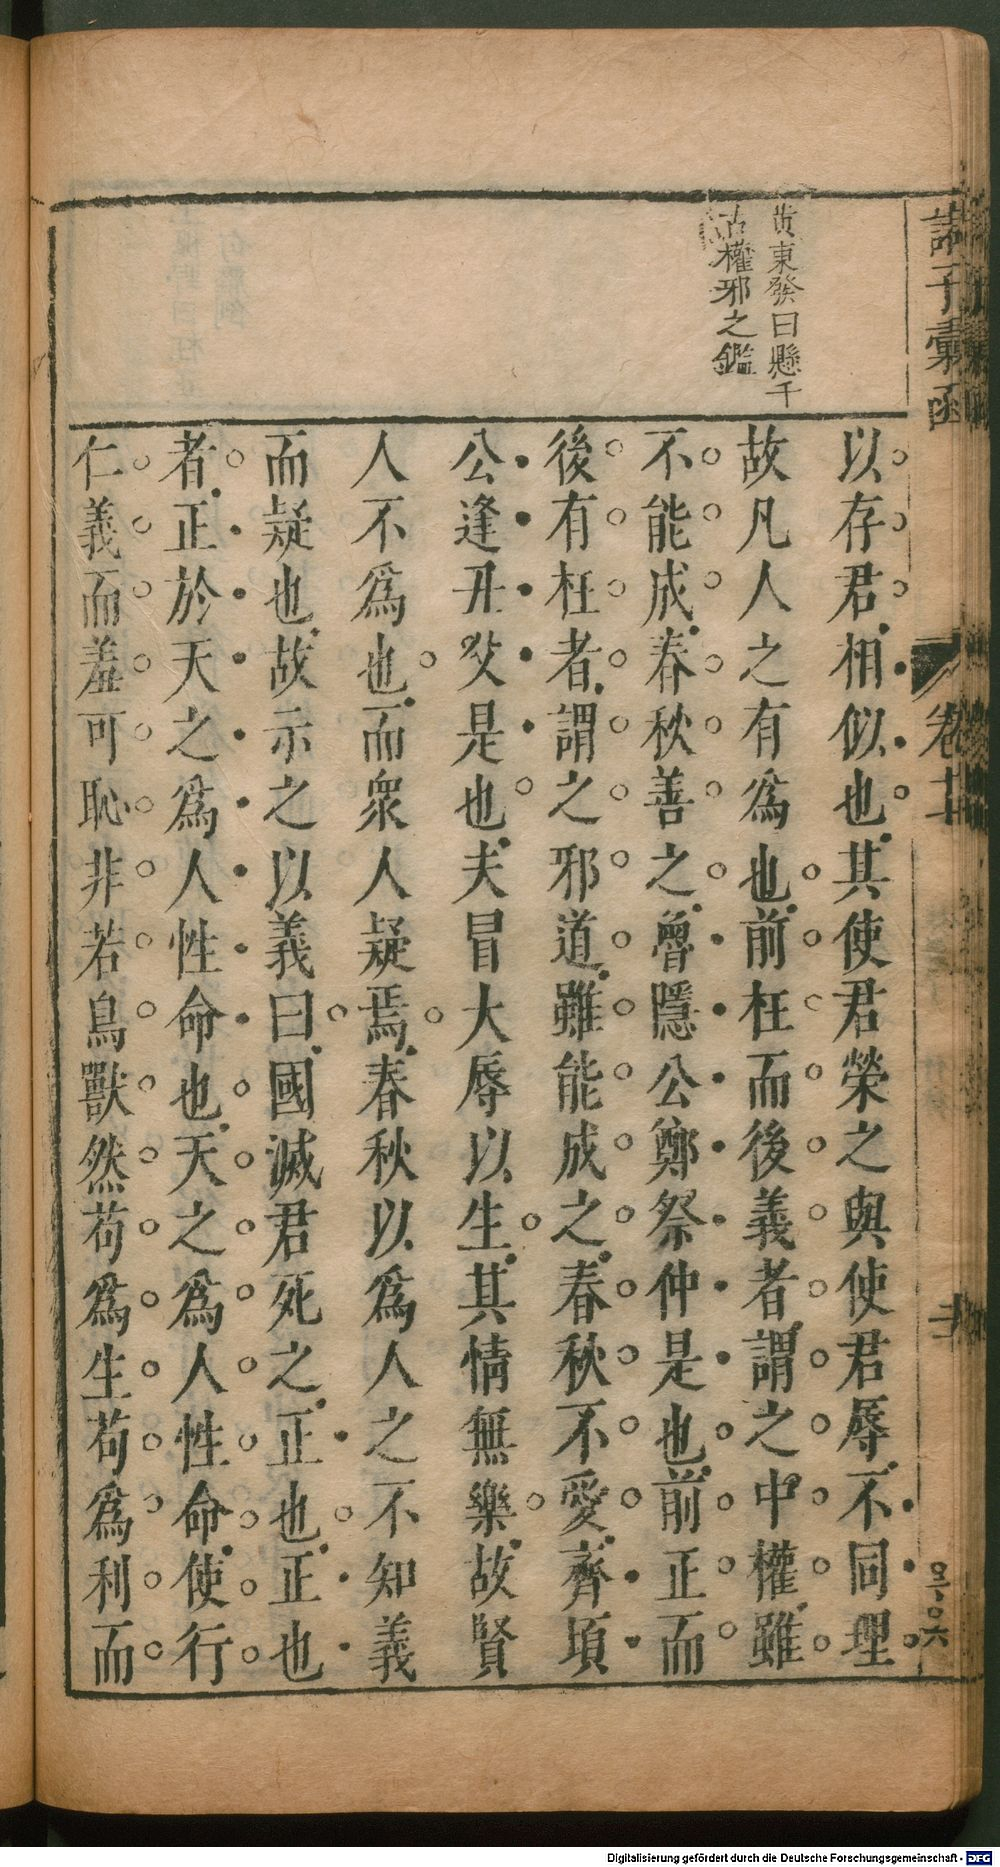 諸子彙函
卷十
黃東發曰懸千
古權邪之鑑
以存君相似也其使君榮之與使君辱不同理
故凡人之有為也前枉而後義者謂之中權雖
不能成春秋善之魯隱公鄭祭仲是也前正而
後有枉者謂之邪道雖能成之春秋不愛齊頃
公逢丑父是也夫冒大辱以生其情無樂故賢
人不為也而衆人疑焉春秋以為人之不知義
而疑也故示之以義曰國滅君死之正也正也
者正於天之為人性命也天之為人性命使行
仁義而羞可恥非若鳥獸然苟為生苟為利而
Digitalisierung gefördert durch die Deutsche Forschungsgemeinschaft - DFG